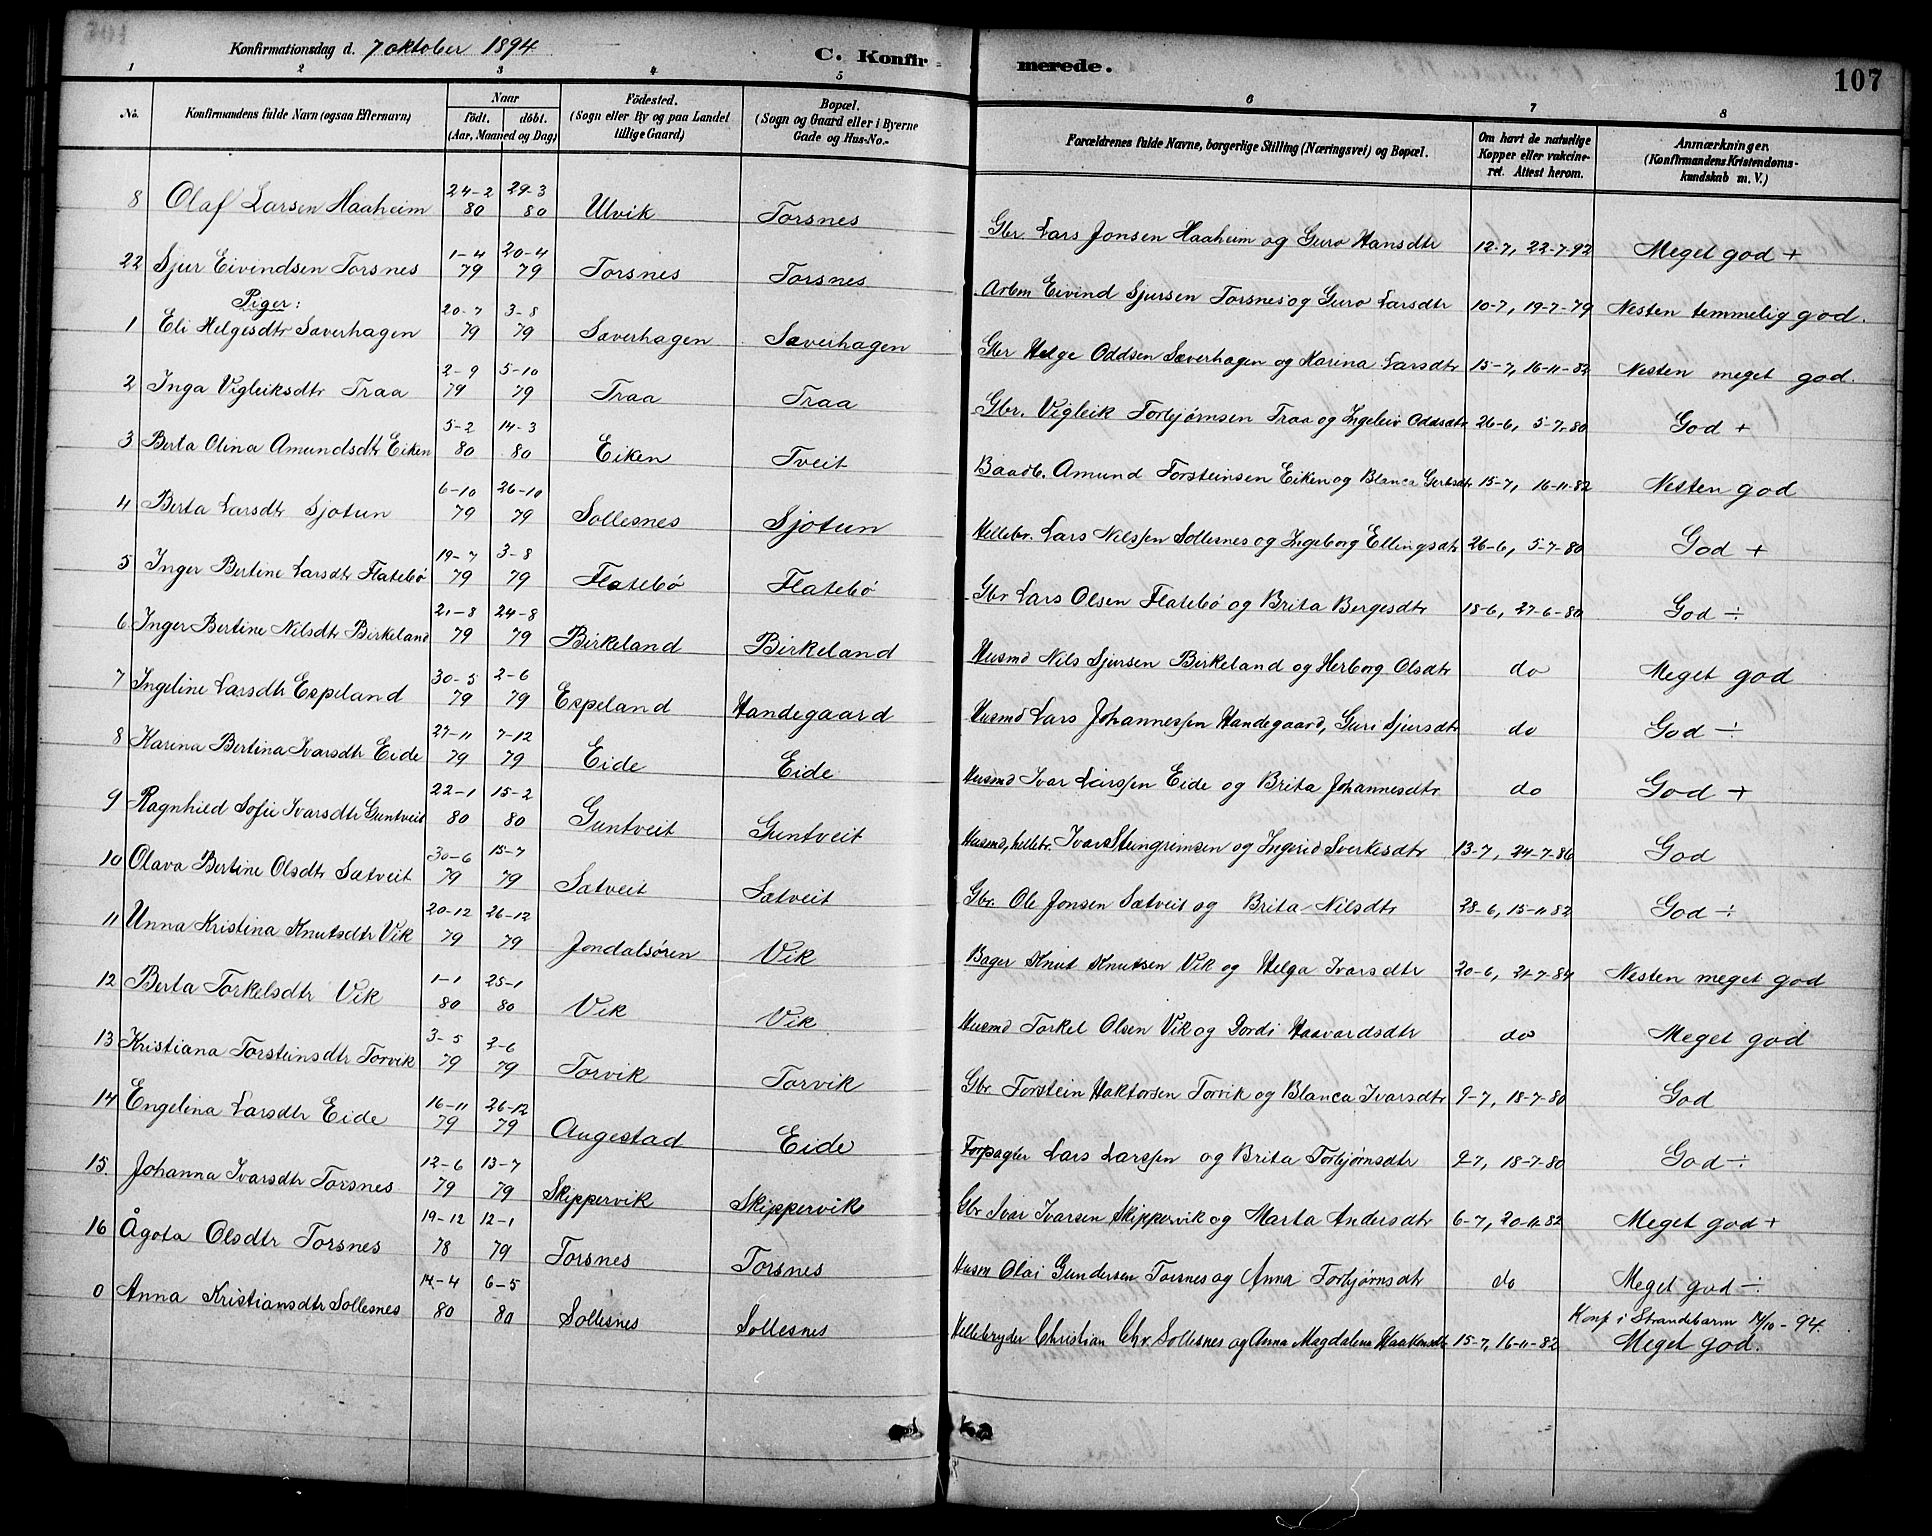 Konfirmationsdag d. 7 oktober 1894
C. Konfirmerede.
107
1 2 3 4 5 6 7 8
No. Konfirmandens fulde Navn (ogsaa Efternavn) Naar födt. döbt. (Aar, Maaned og Dag) Födested. (Sogn eller By og paa Landet tillige Gaard) Bopæl. (Sogn og Gaard eller i Byerne Gade og Hus-No.- Forældrenes fulde Navne, borgerlige Stilling (Næringsvei) og Bopæl. Om havt de naturlige Kopper eller vakcineret. Attest herom. Anmærkninger. (Konfirmandens Kristendomskundskab m. V.)
8 Olaf Larsen Haaheim 24-2 80 29-3 80 Ulvik Torsnes Gbr. Lars Jonsen Haaheim og Guro Hansdtr 12-7, 22-7-92 Meget god +
22 Sjur Eivindsen Torsnes 1-4 79 20-4 79 Torsnes Torsnes Arbm Eivind Sjursen Torsnes og Guro Larsdtr 10-7, 19-7-79 Nesten temmelig god.
Piger:
1 Eli Helgesdtr Saverhagen 20-7 79 3-8 79 Saverhagen Saverhagen Gbr Helge Oddsen Saverhagen og Marina Larsdtr 15-7, 16-11-82 Nesten meget god.
2 Inga Vigleiksdtr Traa 2-9 79 5-10 79 Traa Traa Gbr. Vigleik Torbjørnsen Traa og Ingeleiv Oddsdtr 26-6, 5-7-80 God +
3 Berta Olina Amundsdtr Eiken 5-2 80 14-3 80 Eiken Tveit Baadb. Amund Torsteinsen Eiken og Blanca Gertsdtr 15-7, 16-11-82 Nesten god
4 Berta Larsdtr Sjotun 6-10 79 26-10 79 Sollesnes Sjotun Hellebr. Lars Nilssen Sollesnes og Ingeborg Ellingsdtr 26-6, 5-7-80 God +
5 Inger Bertine Larsdtr Flatebö 19-7 79 3-8 79 Flatebö Flatebö Gbr Lars Olsen Flatebö og Brita Bergesdtr 18-6, 27-6-80 God ÷
6 Inger Bertine Nilsdtr Birkeland 21-8 79 24-8 79 Birkeland Birkeland Husmd Nils Sjursen Birkeland og Herborg Olsdtr do Meget god
7 Ingeline Larsdtr Espeland 30-5 79 2-6 79 Espeland Handegaard Husmd Lars Johannessen Handegaard, Guri Sjursdtr do God ÷
8 Karina Bertina Ivarsdtr Eide 27-11 79 7-12 79 Eide Eide Husmd Ivar Larssen Eide og Brita Johannesdtr do God +
9 Ragnhild Sofie Ivarsdtr Guntveit 22-1 80 15-2 80 Guntveit Guntveit Husmd, hellebr. Ivar Steingrimsen og Ingerid Sverkesdtr 13-7, 24-7-86 God
10 Olava Bertine Olsdtr Sætveit 30-6 79 15-7 79 Sætveit Sætveit Gbr. Ole Jonsen Sætveit og Brita Nilsdtr 28-6, 15-11-82 God ÷
11 Unna Kristina Knutsdtr Vik 20-12 79 26-12 79 Jondalsören Vik Bager Knut Knutsen Vik og Helga Ivarsdtr 20-6, 21-7-84 Nesten meget god
12 Berta Torkelsdtr Vik 1-1 80 25-1 80 Vik Vik Husmd Torkel Olsen Vik og Gordi Haavardsdtr do Meget god
13 Kristiana Torsteinsdtr Torvik 3-5 79 2-6 79 Torvik Torvik Gbr Torstein Haktorsen Torvik og Blanca Ivarsdtr 9-7, 18-7-80 God
14 Engelina Larsdtr Eide 16-11 79 26-12 79 Augestad Eide Forpagter Lars Larssen og Brita Torbjørnsdtr 9-7, 18-7-80 God ÷
15. Johanna Ivarsdtr Torsnes 12-6 79 13-7 79 Skippervik Skippervik Gbr Ivar Ivarsen Skippervik og Marta Andersdtr 6-7, 20-11-82 Meget god +
16 Ågota Olsdtr Torsnes 19-12 78 12-1 79 Torsnes Torsnes Husm Olai Gundersen Torsnes og Anna Torbjørnsdtr do Meget god ÷
0 Anna Kristiansdtr Sollesnes 14-4 80 6-5 80 Sollesnes Sollesnes Hellebryder Christian Chr. Sollesnes og Anna Magdalena Haakensdtr 15-7, 16-11-82 Konf i Strandebarm 14/10-94. Meget god.